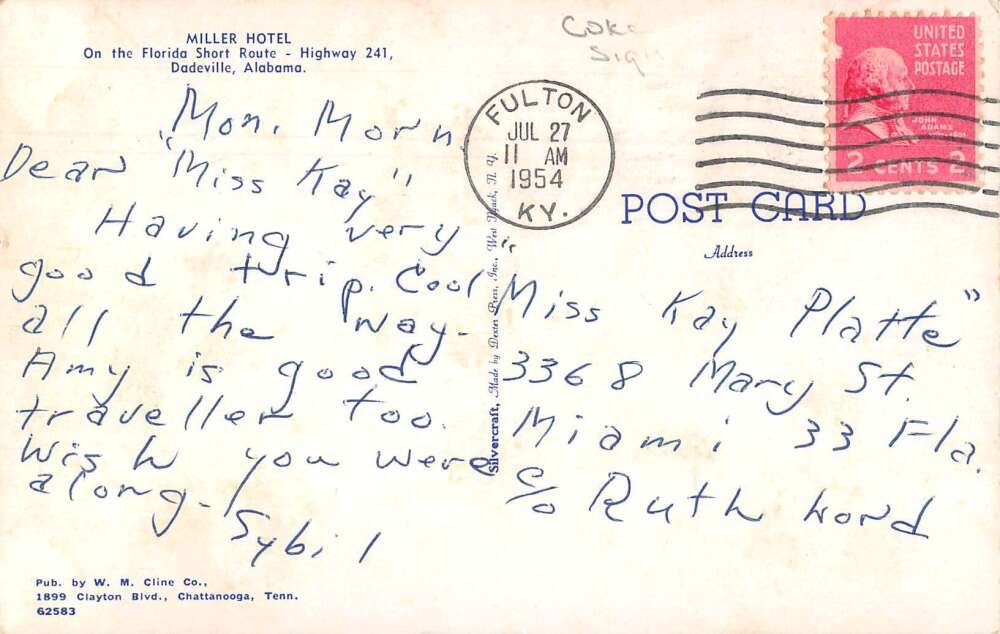 MILLER HOTEL
On the Florida Short Route - Highway 241,
Dadeville, Alabama.
Coke
Sign
UNITED
STATES
POSTAGE
JOHN
ADAMS
2 CENTS 2
FULTON
JUL 27
11 AM
1954
KY.
POST CARD
Address
Mon. Morn.
Dear "Miss Kay"
Having very
good trip. Cool
all the way-
Amy is good
traveller too.
Wish you were
along-
Sybil
Silvercraft, Made by Dexter Press, Inc., West Nyack, N. Y.
"Miss Kay Platte"
3368 Mary St.
Miami 33 Fla.
c/o Ruth
Pub. by W. M. Cline Co.,
1899 Clayton Blvd., Chattanooga, Tenn.
62583